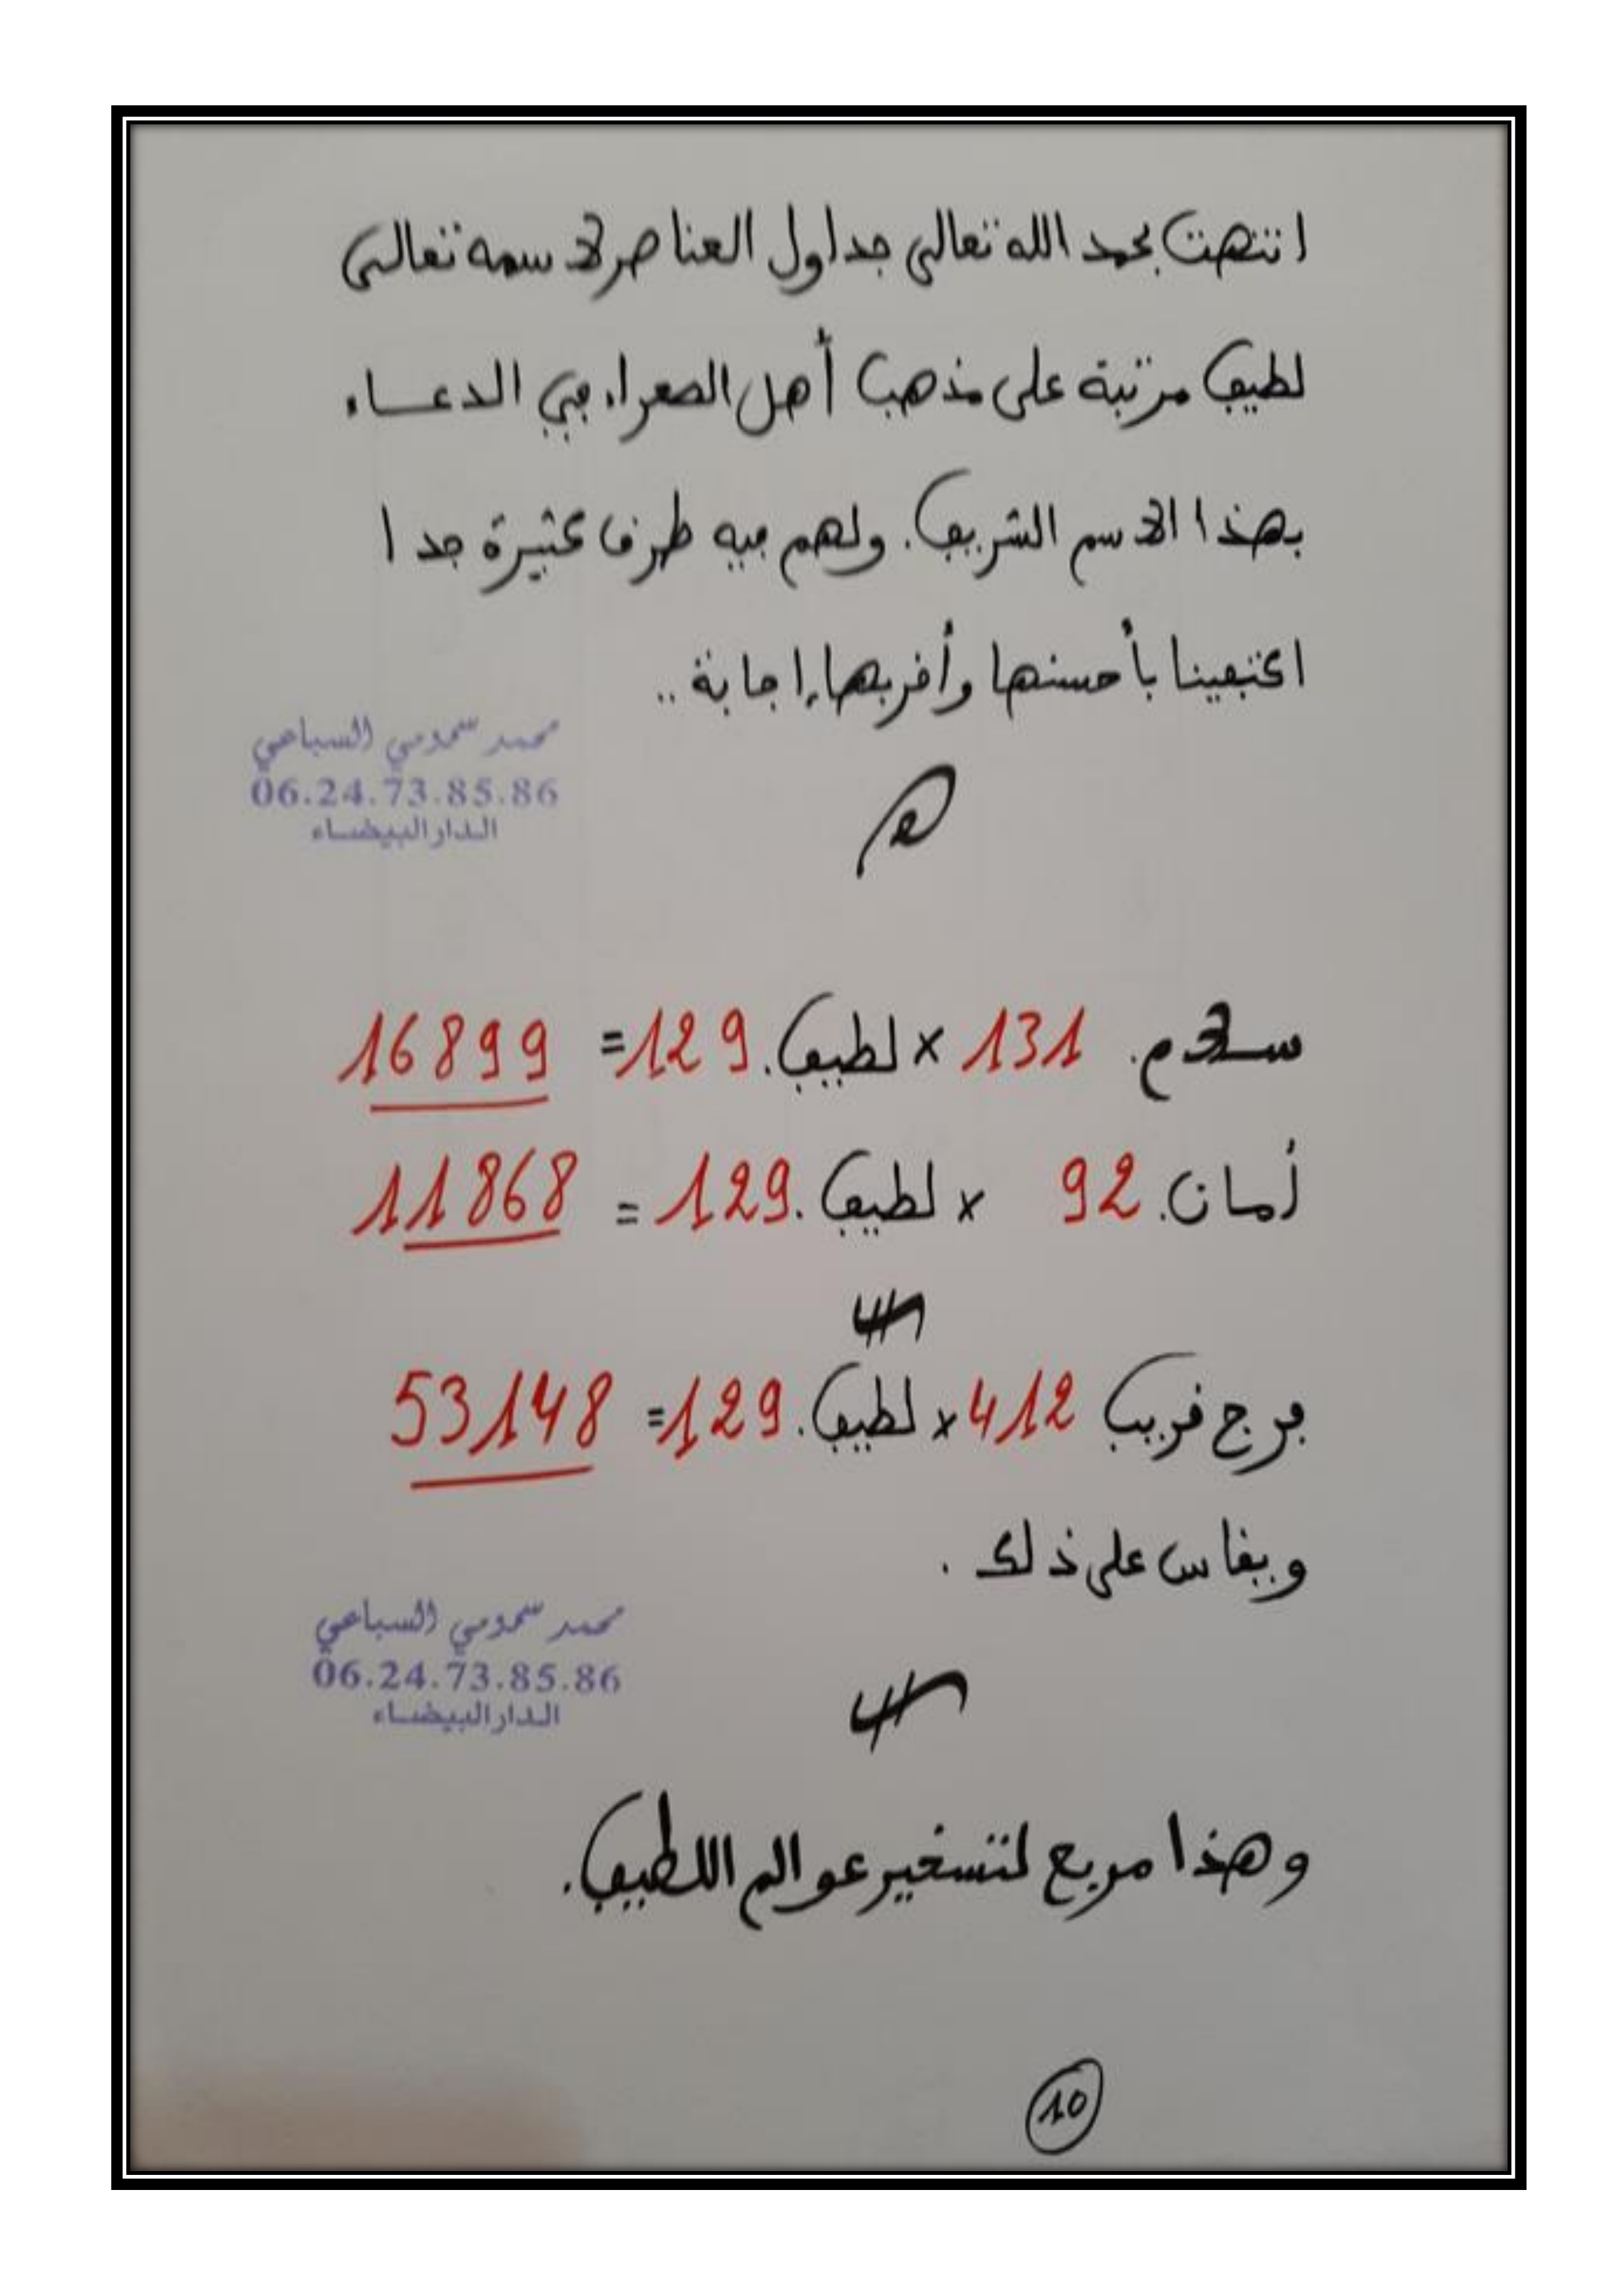 انتهت بحمد الله تعالى جداول العناصر لاسمه تعالى
لطيف مرتبة على مذهب أهل الصحراء في الدعاء
بهذا الاسم الشريف. ولهم فيه طرق كثيرة جدا
اكتفينا بأحسنها وأقربها إجابة..
محمد سمومي السباعي
06.24.73.85.86
الدار البيضاء
سلام. 131 × لطيف. 129 = 16899
أمان. 92 × لطيف. 129 = 11868
فرج قريب 412 × لطيف. 129 = 53148
ويقاس على ذلك.
محمد سمومي السباعي
06.24.73.85.86
الدار البيضاء
وهذا مربع لتسخير عوالم اللطيف.
10